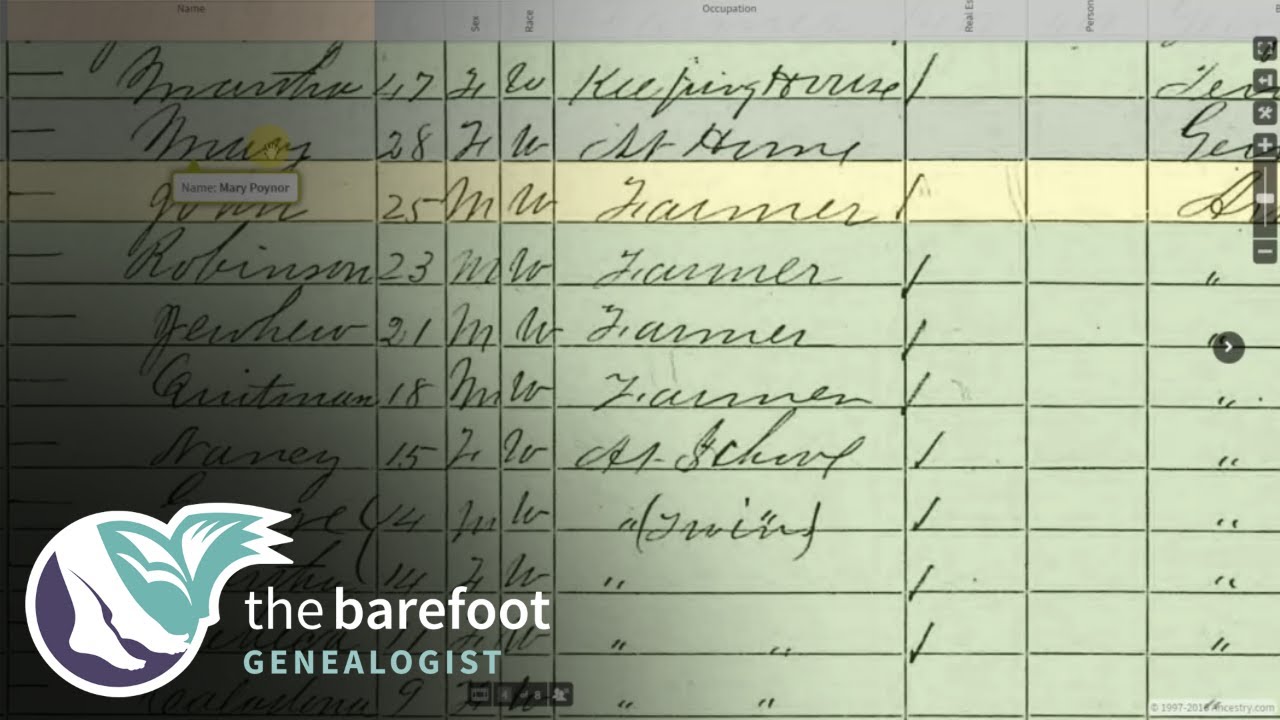 Name Sex Race Occupation Real Es Person
Martha 47 F W Keeping House
Mary 28 F W At Home
Name: Mary Poynor
John 25 M W Farmer
Robinson 23 M W Farmer "
21 M W Farmer "
Quitman 18 M W Farmer "
Nancy 15 F W At School "
14 M W " (Twins) "
14 F W " "
11 F W " " "
9 F W " " "
the barefoot
GENEALOGIST
8
© 1997-201 Ancestry.com